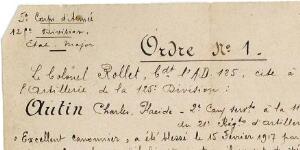 Corps d'Armée
Division
Etat-Major
Ordre No 1.
Le Colonel Rollet, Cdt l'A.D. 125, cite à
l'Artillerie de la 125e Division :
Autin Charles, Placide - 2e Can servt à la 11
du 21e Régt d'Artiller
Excellent canonnier, a été blessé le 15 février 1917 par